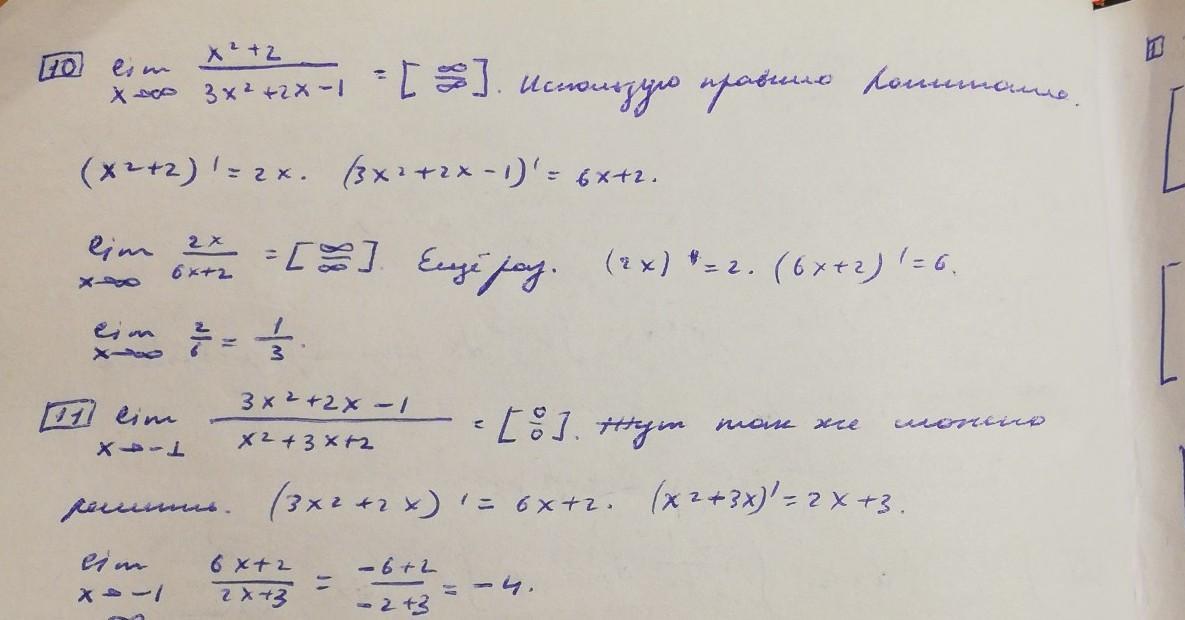 10 lim x→∞ x²+2 / 3x²+2x-1 = [∞/∞]. Использую правило Лопиталя.
(x²+2)' = 2x. (3x²+2x-1)' = 6x+2.
lim x→∞ 2x / 6x+2 = [∞/∞]. Ещё раз. (2x)' = 2. (6x+2)' = 6.
lim x→∞ 2/6 = 1/3.
11 lim x→-1 3x²+2x-1 / x²+3x+2 = [0/0]. Тут так же можно
решить. (3x²+2x)' = 6x+2. (x²+3x)' = 2x+3.
lim x→-1 6x+2 / 2x+3 = -6+2 / -2+3 = -4.